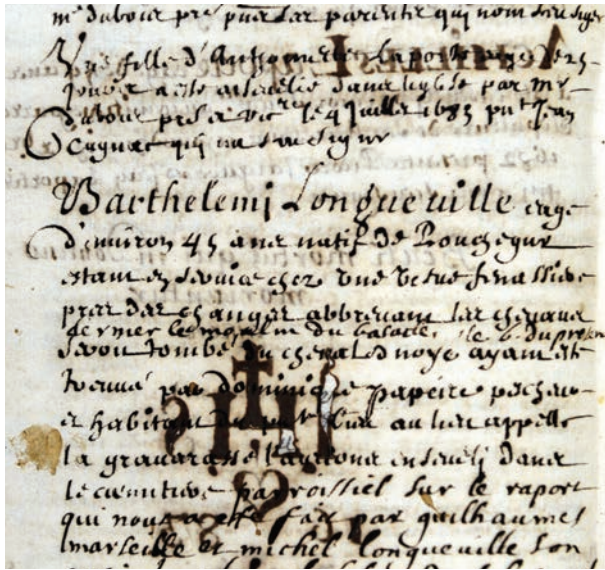 mr dubois pre par les parents qui nont seu signer
Une fille d'Anthome Laporte agée de
jours a este ensevelie dans leglise par mr
dubois pre et vic le 4 juillet 1683 pnt Jean
Cagnac qui na seu signe
Barthelemi Longueville eage
d'environ 45 ans natif de Rouchegur
estant en service chez une vesve
pres des changes abbreuvant les chevaux
dernier le molin du basacle le 6 du present
seroit tombé du cheval noye ayant esté
trouvé par dominique papeire pecheur
et habitant du pnt lieu au lieu appelle
la gravarasse l'aurions enseveli dans
le cemitiere parroissiel sur le raport
qui nous a esté fait par guilhaumes
marseille et michel longueville son